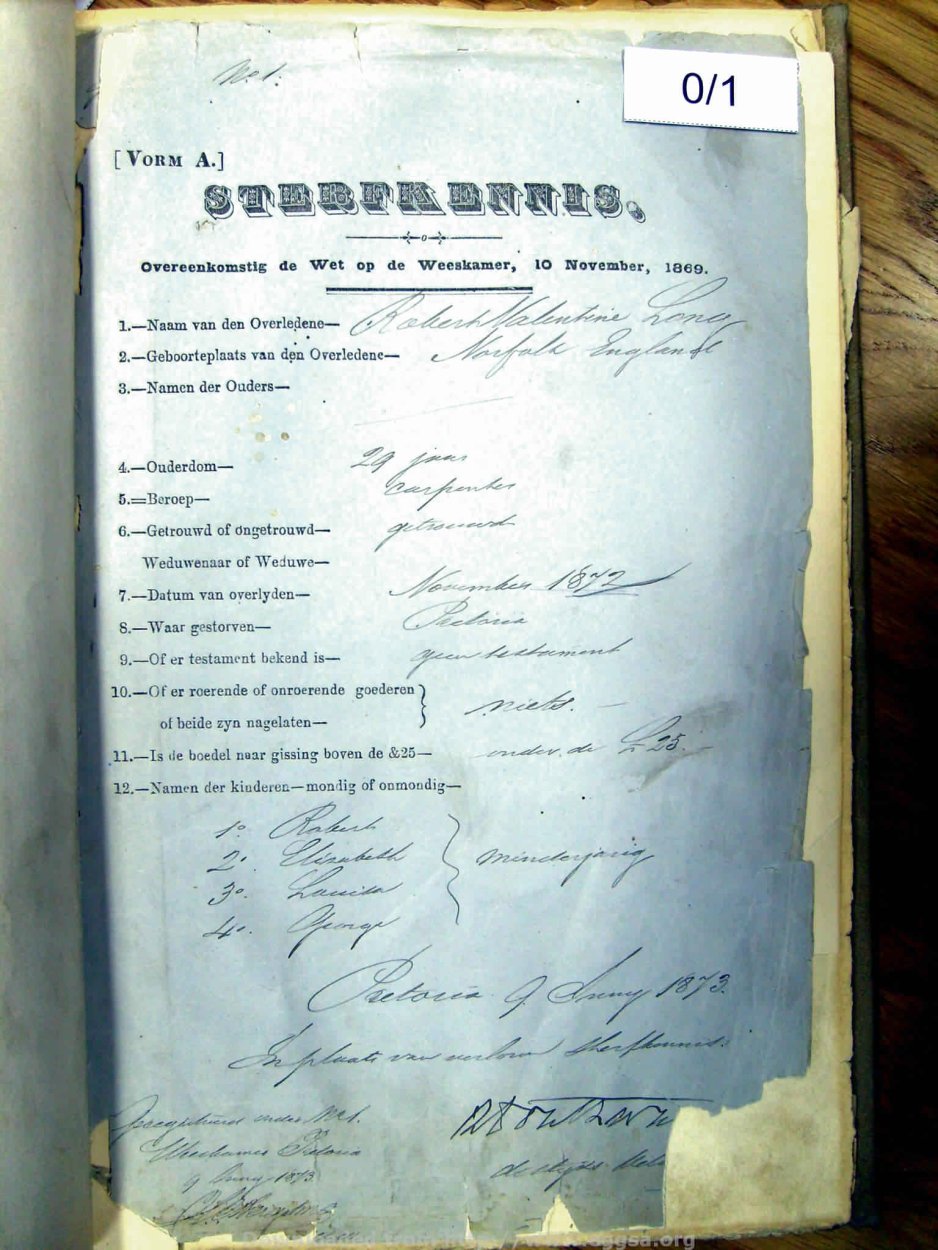 No 1.
0/1
[VORM A.]
STERFKENNIS.
Overeenkomstig de Wet op de Weeskamer, 10 November, 1869.
1.—Naam van den Overledene— Robert Valentine Long
2.—Geboorteplaats van den Overledene— Norfolk England
3.—Namen der Ouders—
4.—Ouderdom— 29 jaar
5.=Beroep— Carpenter
6.—Getrouwd of ongetrouwd— getrouwd
Weduwenaar of Weduwe—
7.—Datum van overlyden— November 1872
8.—Waar gestorven— Pretoria
9.—Of er testament bekend is— geen testament
10.—Of er roerende of onroerende goederen
of beide zyn nagelaten— niets.
11.—Is de boedel naar gissing boven de &25— onder de £25.
12.—Namen der kinderen—mondig of onmondig—
1o. Robert
2o. Elizabeth
3o. Louisa
4o. George
minderjarig
Pretoria 9 Juny 1873.
In plaats van verloren sterfkennis.
Geregistreerd onder No 1.
Weeskamer Pretoria
9 Juny 1873